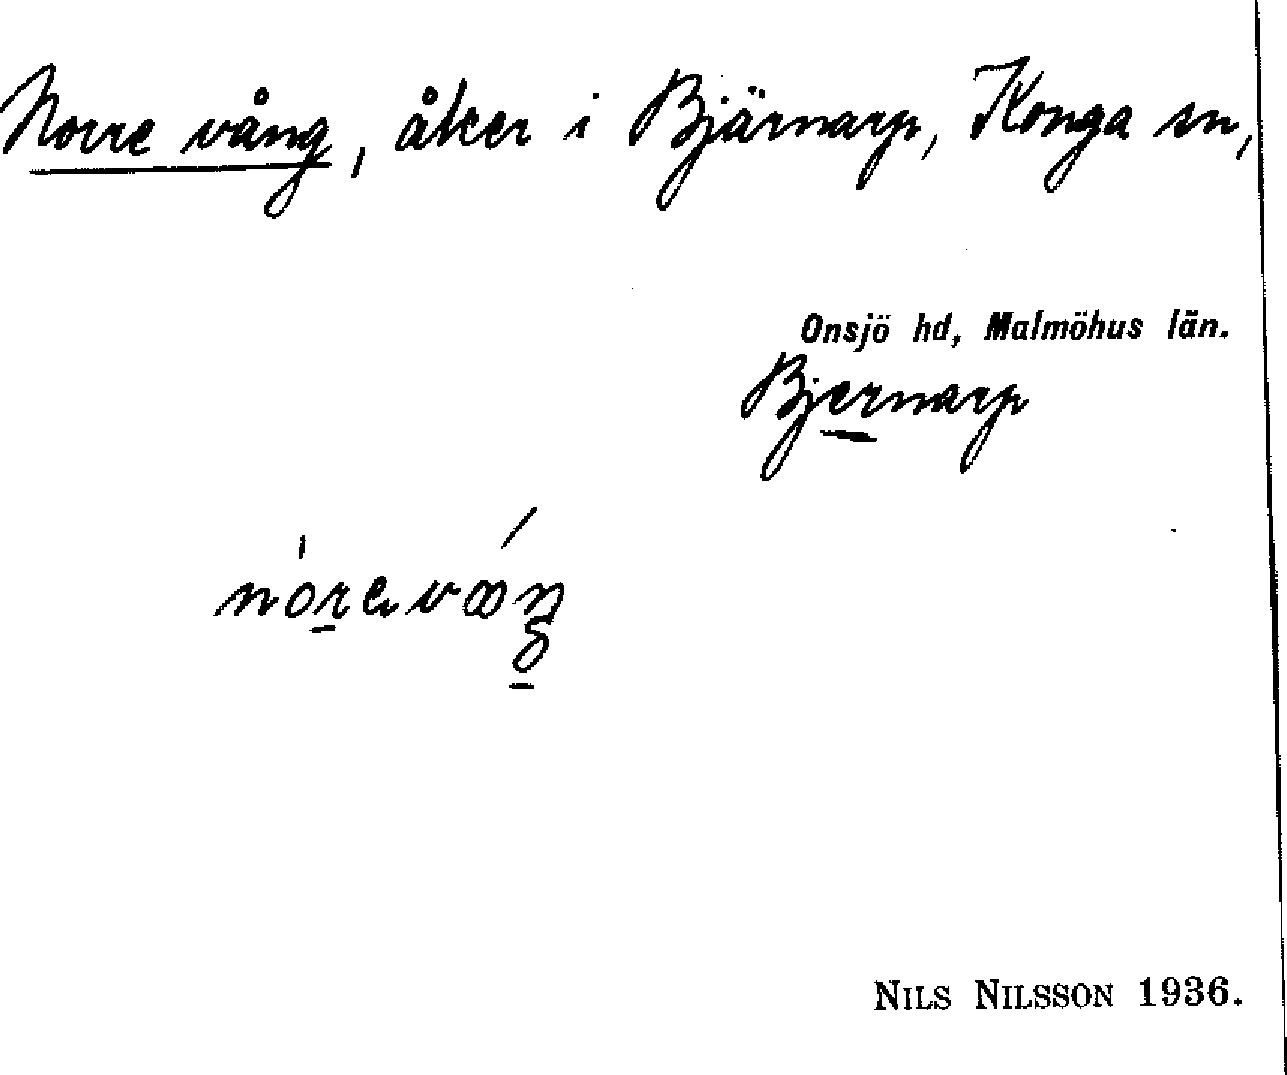 Norre vång, åker i Bjärnarp, Konga sn,
Onsjö hd, Malmöhus län.
Bjernarp
NILS NILSSON 1936.